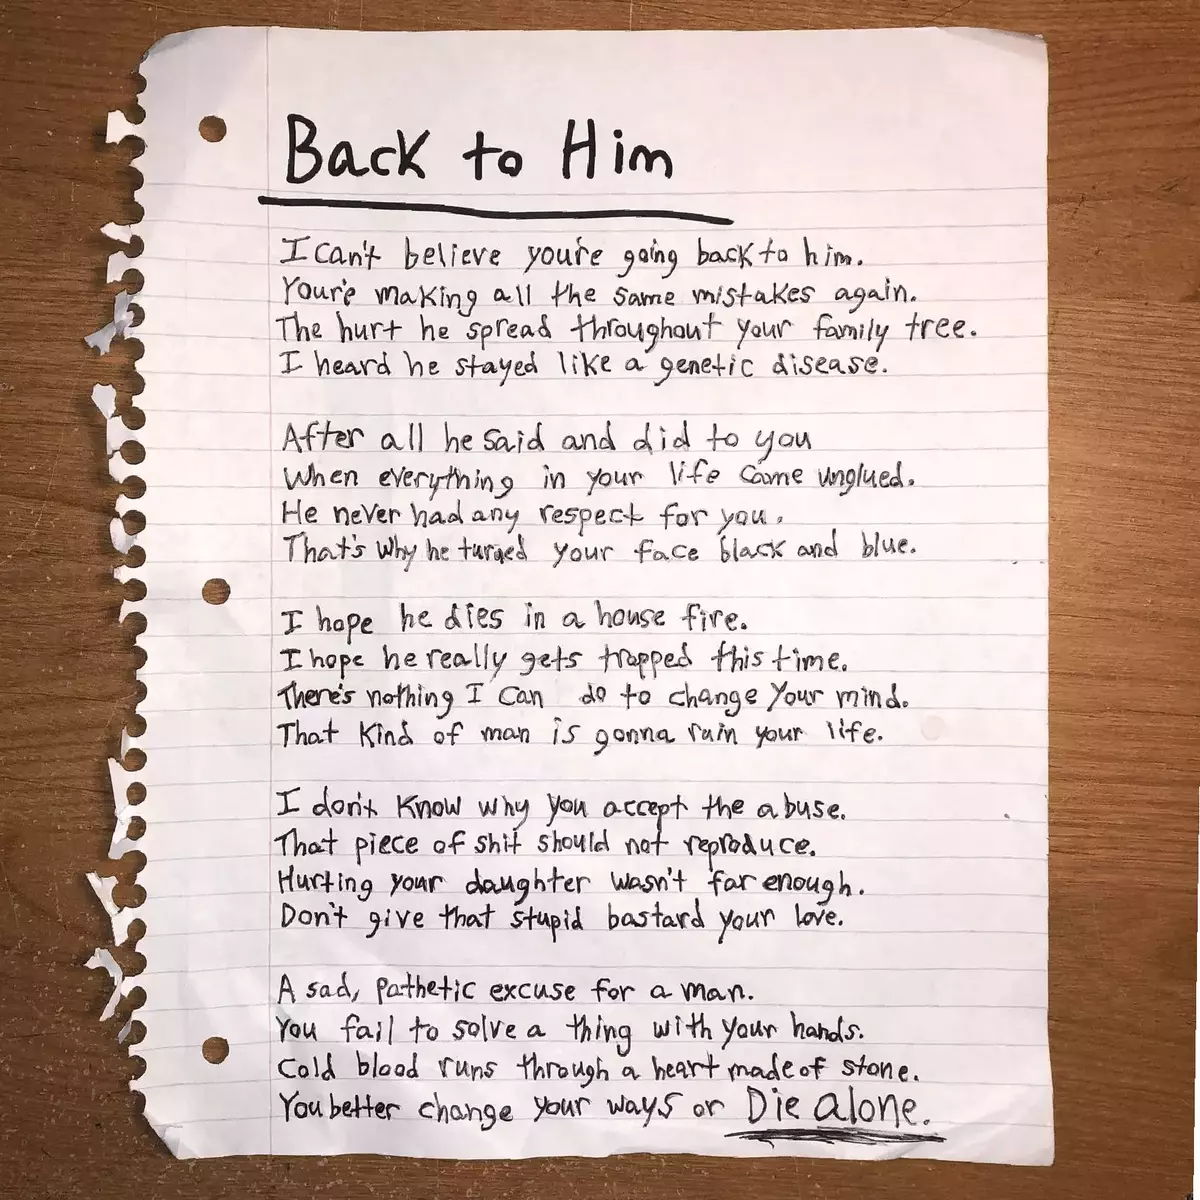 Back to Him
I can't believe you're going back to him.
You're making all the same mistakes again.
The hurt he spread throughout your family tree.
I heard he stayed like a genetic disease.
After all he said and did to you
When everything in your life came unglued.
He never had any respect for you.
That's why he turned your face black and blue.
I hope he dies in a house fire.
I hope he really gets trapped this time.
There's nothing I can do to change your mind.
That kind of man is gonna ruin your life.
I don't know why you accept the abuse.
That piece of shit should not reproduce.
Hurting your daughter wasn't far enough.
Don't give that stupid bastard your love.
A sad, pathetic excuse for a man.
You fail to solve a thing with your hands.
Cold blood runs through a heart made of stone.
You better change your ways or Die alone.